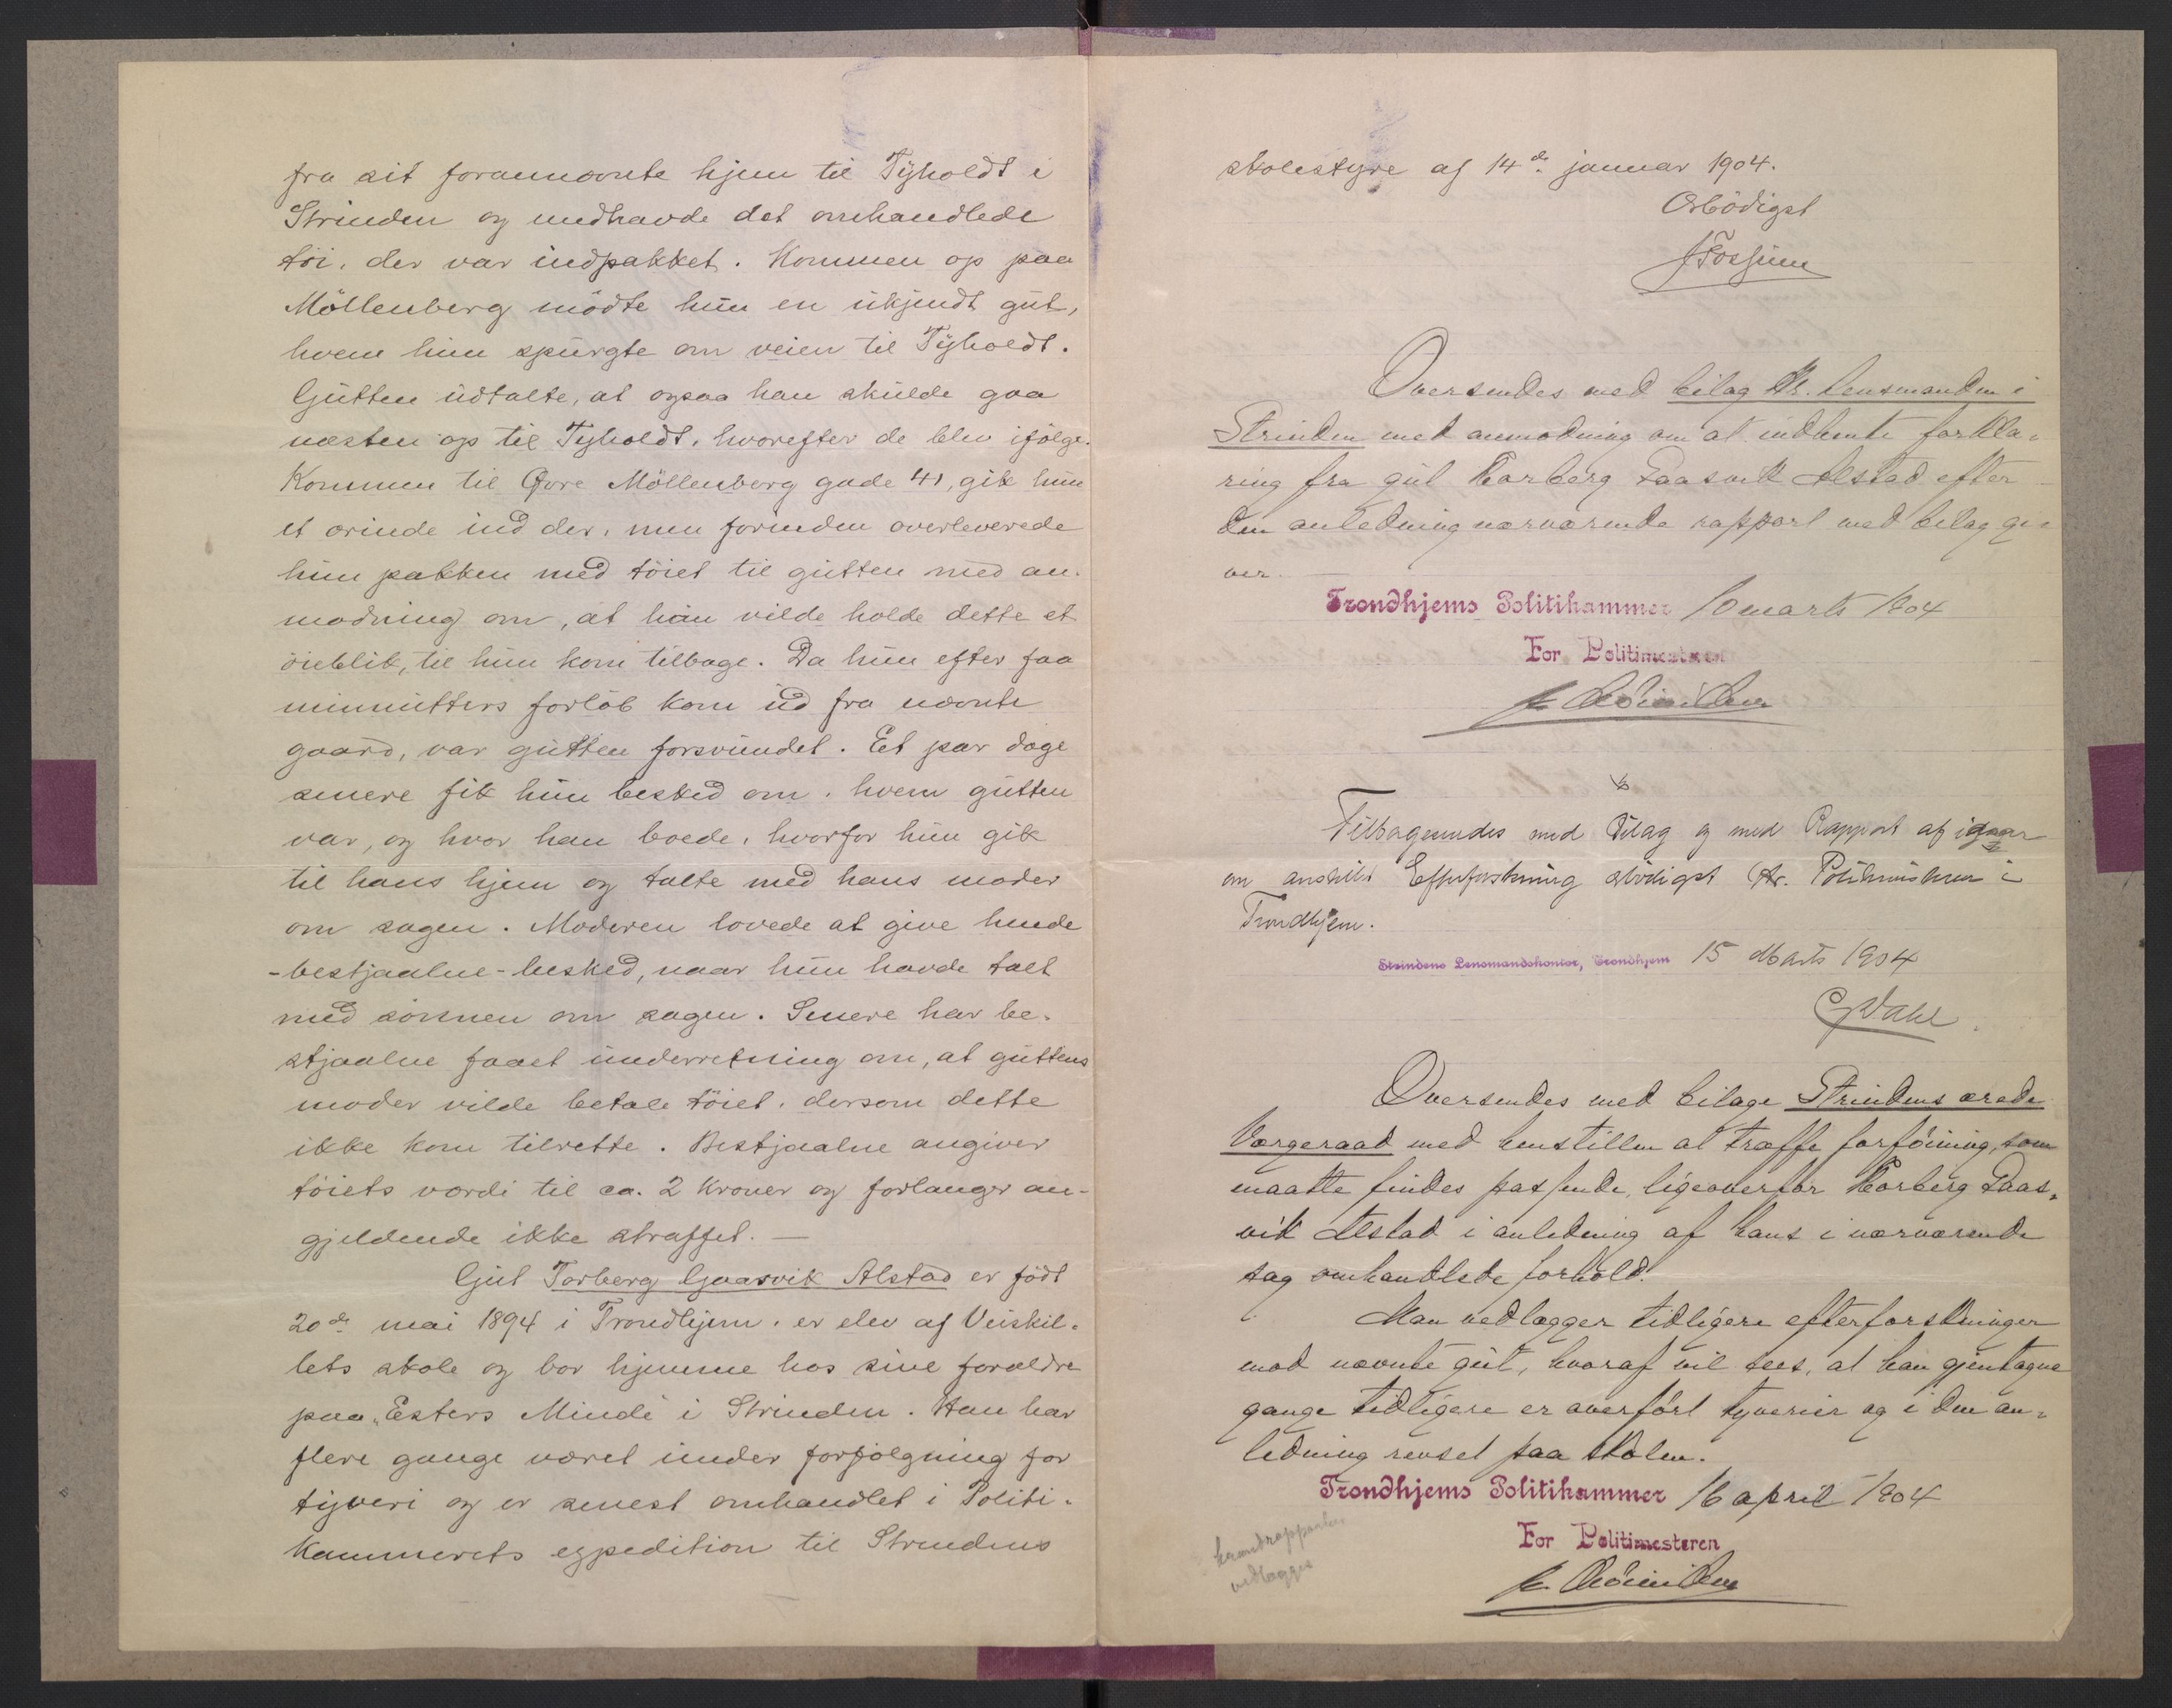 fra sit forannævnte hjem til Tyholdt i
Strinden og medhavde det omhandlede
töi, der var indpakket. Kommen op paa
Möllenberg mödte hun en ukjendt gut,
hvem hun spurgte om veien til Tyholdt.
Gutten udtalte, at ogsaa han skulde gaa
næsten op til Tyholdt, hvorefter de blev ifölge.
Kommen til Övre Möllenberg gade 41, gik hun
et ærinde ind der, men forinden overleverede
hun pakken med töiet til gutten med an-
modning om, at han vilde holde dette et
öieblik, til hun kom tilbage. Da hun efter faa
minnutters forlöb kom ud fra nævnte
gaard, var gutten forsvundet. Et par dage
senere fik hun besked om, hvem gutten
var, og hvor han boede, hvorfor hun gik
til hans hjem og talte med hans moder
om sagen. Moderen lovede at give hende
- bestjaalne - besked, naar hun havde talt
med sönnen om sagen. Senere har be-
stjaalne faaet underretning om, at guttens
moder vilde betale töiet, dersom dette
ikke kom tilrette. Bestjaalne angiver
töiets værdi til ca. 2 kroner og forlanger an-
gjeldende ikke straffet. —
Gut Torberg Gaasvik Alstad er födt
20de mai 1894 i Trondhjem, er elev af Veiskil-
lets skole og bor hjemme hos sine forældre
paa „Esters Minde" i Strinden. Han har
flere gange været under forfölgning for
tyveri og er senest omhandlet i Politi-
kammerets expedition til Strindens
skolestyre af 14de januar 1904.
Ærbödigst
J Fossum
Oversendes med bilag Hr. Lensmanden i
Strinden med anmodning om at indhente forkla-
ring fra gut Torberg Gaasvik Alstad efter
den anledning nærværende rapport med bilag gi-
ver.
Trondhjems Politikammer 10 marts 1904
For Politimesteren
Tilbagesendes med Bilag og med Rapport af igaar
om anstillet Efterforskning ærbödigst Hr. Politimesteren i
Trondhjem.
Strindens Lensmandskontor, Trondhjem 15 Marts 1904
Dahl
Oversendes med bilage Strindens ærede
Værgeraad med henstillen at træffe forföining, som
maatte findes passende, ligeoverfor Torberg Gaas-
vik Alstad i anledning af hans i nærværende
sag omhandlede forhold.
Man vedlægger tidligere efterforskninger
mod nævnte gut, hvoraf vil sees, at han gjentagne
gange tidligere er overfört tyverier og i den an-
ledning revset paa skolen.
Trondhjems Politikammer 16 april 1904
For Politimesteren
vedlægges